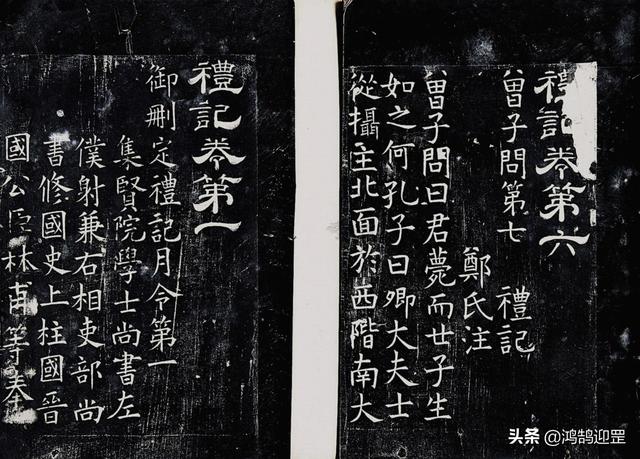 禮記卷第六
曾子問第七 禮記
鄭氏注
曾子問曰君薨而世子生
如之何孔子曰卿大夫士
從攝主北面於西階南大
禮記卷第一
御刪定禮記月令第一
集賢院學士尚書左
僕射兼右相吏部尚
書修國史上柱國晉
國公臣林甫等奉
头条 @鸿鹄迎罡